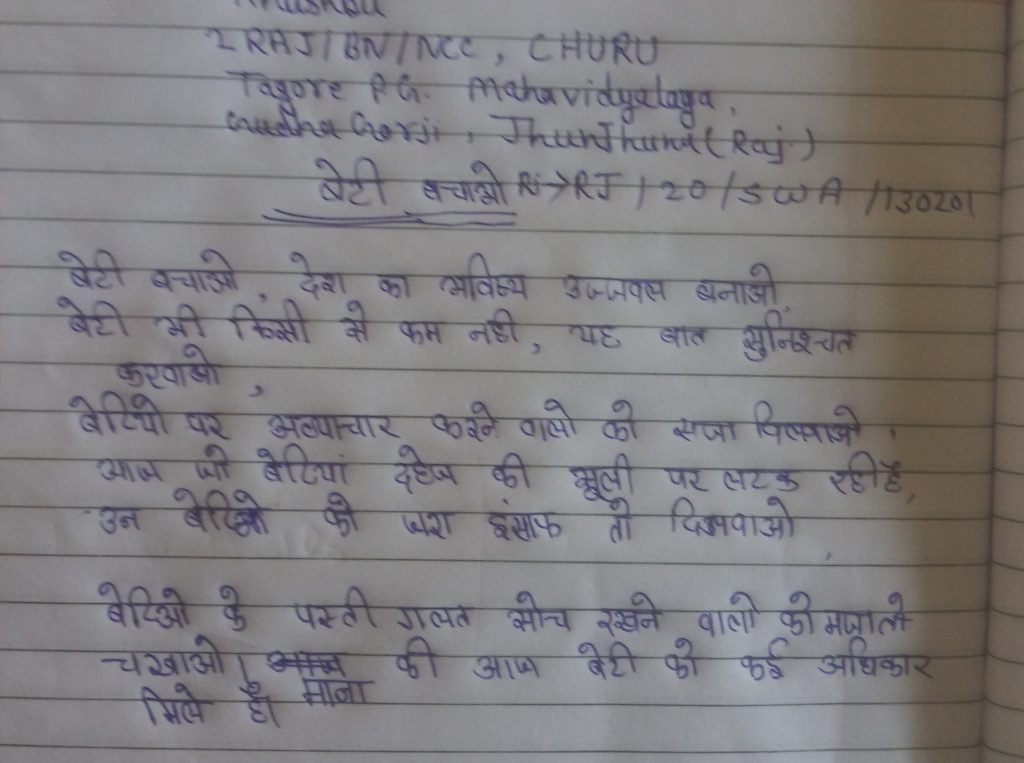 2 RAJ/BN/NCC, CHURU
Tagore P.G. Mahavidyalaya,
Gudha Gorji, JhunJhunu (Raj.)
बेटी बचाओ RJ/20/SWA/130201
बेटी बचाओ, देश का भविष्य उज्जवल बनाओ,
बेटी भी किसी से कम नही, यह बात सुनिश्चत
करवाओ,
बेटियो पर अत्याचार करने वालो को सजा दिलवाओ,
आज जो बेटियां दहेज की सूली पर लटक रही है,
उन बेटिओ को जरा इंसाफ तो दिलवाओ,
बेटिओ के परती गलत सोच रखने वालो को मजा तो
चखाओ। की आज बेटी को कई अधिकार
मिले है। माना